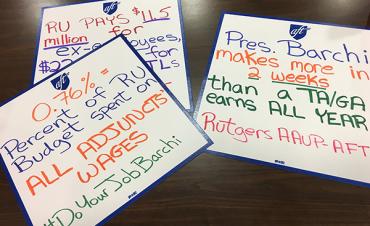 aft
RU PAYS $11.5
million to
ex-employees,
for
TLs
aft
0.76% =
Percent of RU
Budget spent on
ALL ADJUNCTS'
WAGES
#Do Your Job Barchi
aft
Pres. Barchi
makes more in
2 weeks
than a TA/GA
earns ALL YEAR
Rutgers AAUP-AFT